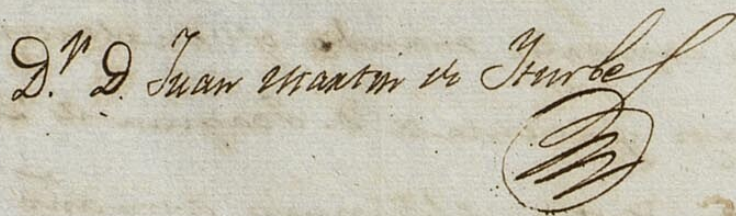 D.ʳ D. Juan Martin de Yturbe